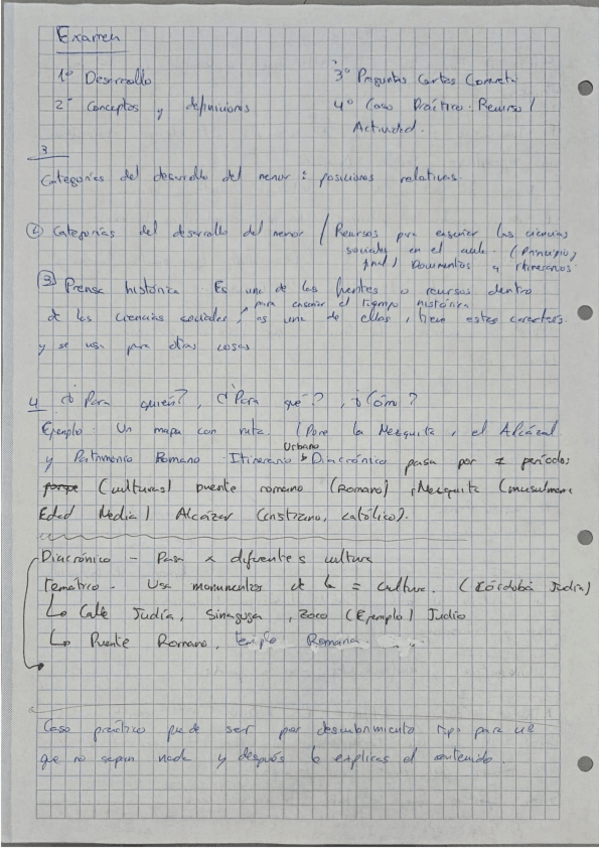 Examen
1º Desarrollo
3º Preguntas Cortas Concret.
2º Conceptos y definiciones
4º Caso Práctico: Recurso /
Actividad.
3
Categorías del desarrollo del menor: posiciones relativas.
② Categorías del desarrollo del menor / Recursos para enseñar las ciencias
sociales en el aula. (Principio,
final) Documentos y itinerarios
③ Prensa histórica. Es una de las fuentes o recursos dentro
para enseñar el tiempo histórico
de las ciencias sociales, es una de ellas, tiene estas caracters
y se usa para otras cosas
4 ¿Para quién?, ¿Para qué?, ¿Cómo?
Ejemplo: Un mapa con ruta. (Pone la Mezquita, el Alcázal
Urbano
y Patrimonio Romano. Itinerario Diacrónico pasa por ≠ períodos
(culturas) puente romano (Romano), Mezquita (musulmana
Edad Media) Alcázar (cristiano, católico).
Diacrónico - Pasa x diferentes cultura
Temático - Usa monumentos de la = cultura. (Córdoba Judía)
↳ Calle Judía, Sinagoga, zoco (Ejemplo) Judío
↳ Puente Romano, templo Romano.
Caso práctico puede ser por descubrimiento tipo para
que no sepan nada y después lo explicas el contenido.